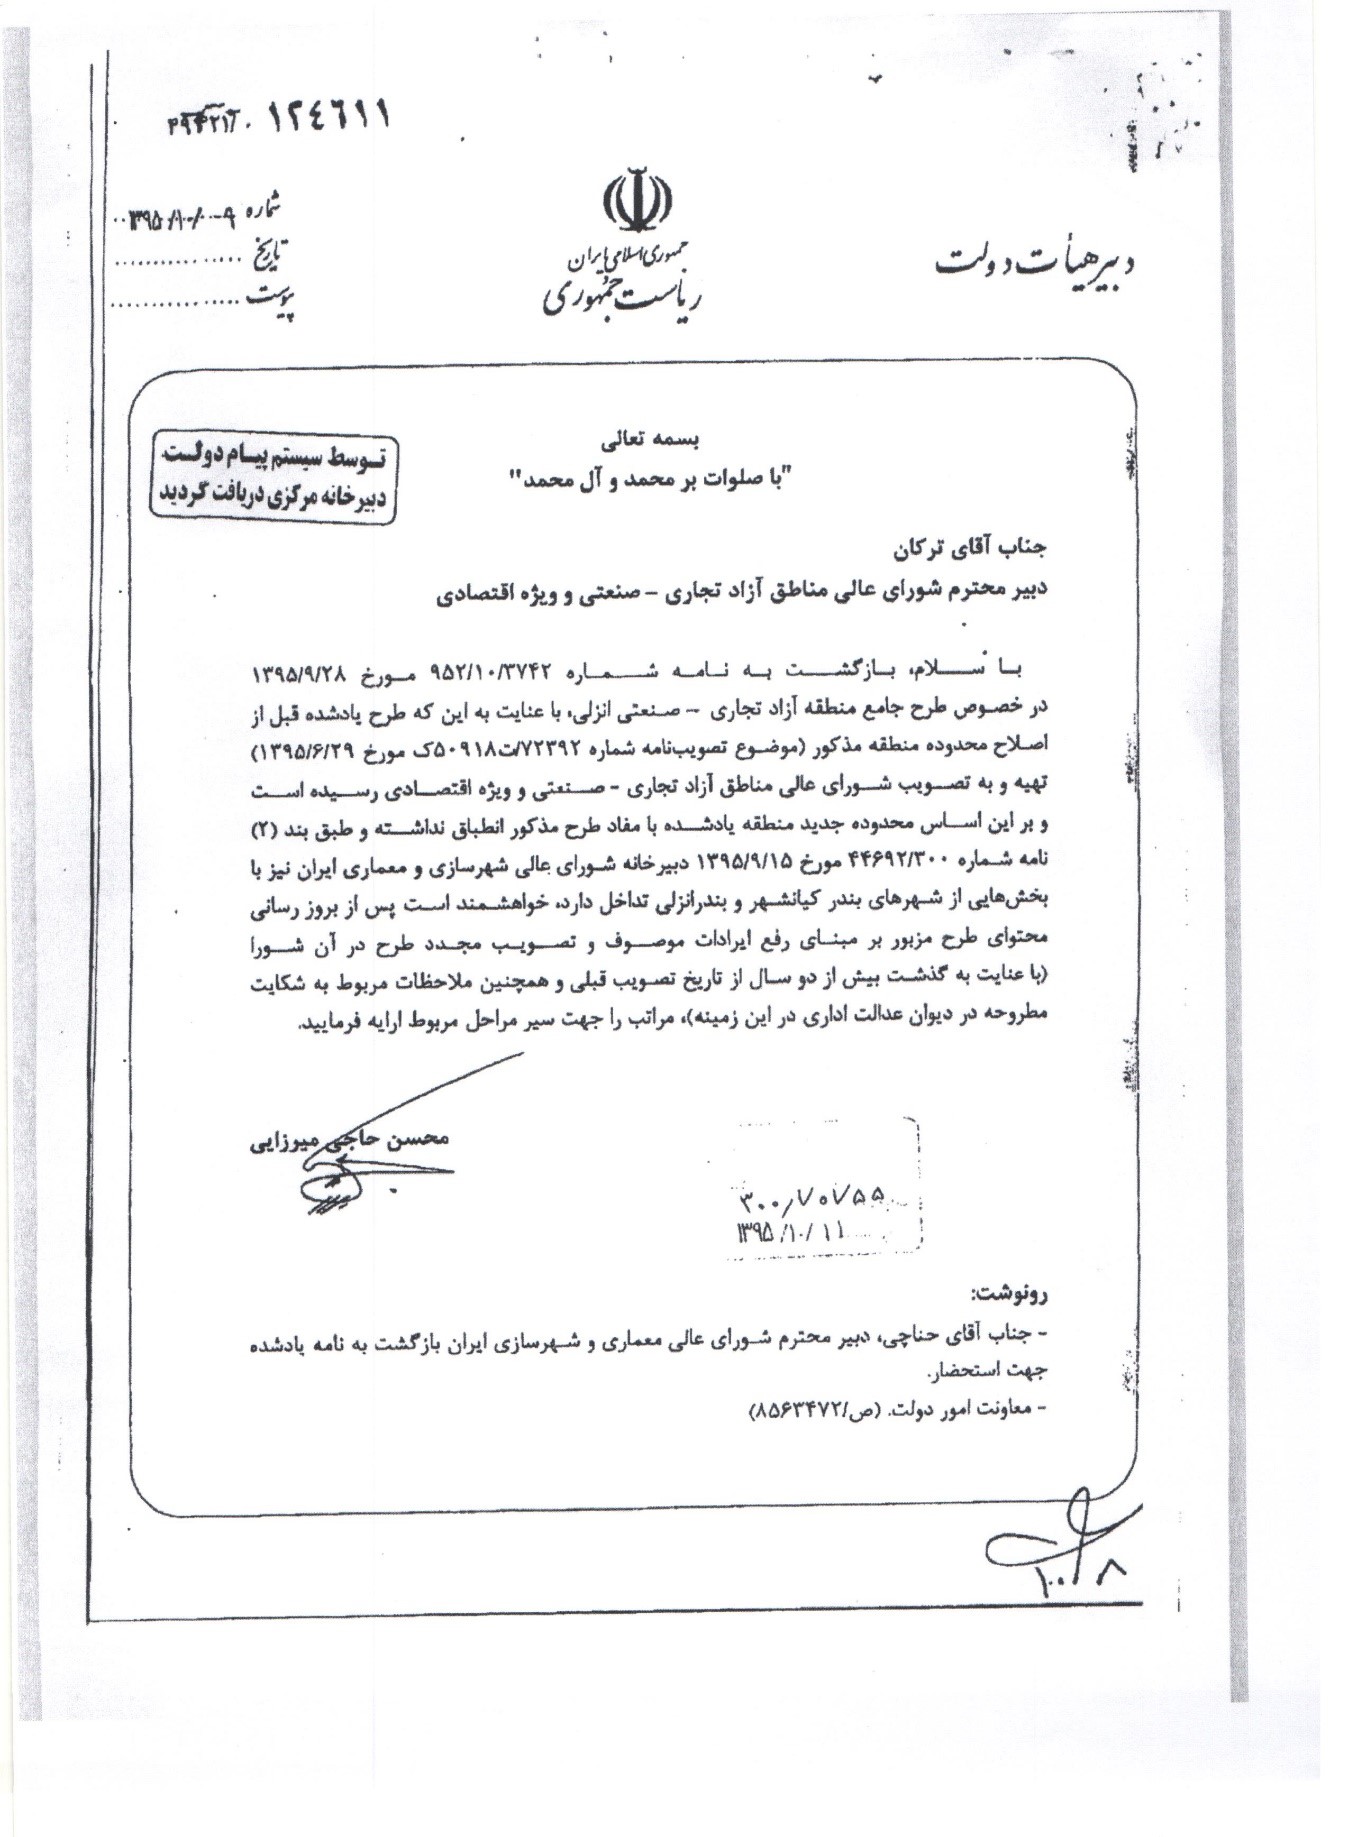 ۱۲٤٦۱۱
دبیر هیأت دولت
جمهوری اسلامی ایران
ریاست جمهوری
شماره ۱۳۹۵/۱۰/۰۰۹
تاریخ
پیوست
توسط سیستم پیام دولت
دبیرخانه مرکزی دریافت گردید
بسمه تعالی
"با صلوات بر محمد و آل محمد"
جناب آقای ترکان
دبیر محترم شورای عالی مناطق آزاد تجاری – صنعتی و ویژه اقتصادی
با سلام، بازگشت به نامه شماره ۹۵۲/۱۰/۳۷۴۲ مورخ ۱۳۹۵/۹/۲۸
در خصوص طرح جامع منطقه آزاد تجاری – صنعتی انزلی، با عنایت به این که طرح یادشده قبل از
اصلاح محدوده منطقه مذکور (موضوع تصویب‌نامه شماره ۷۲۳۹۲/ت۵۰۹۱۸ک مورخ ۱۳۹۵/۶/۲۹)
تهیه و به تصویب شورای عالی مناطق آزاد تجاری – صنعتی و ویژه اقتصادی رسیده است
و بر این اساس محدوده جدید منطقه یادشده با مفاد طرح مذکور انطباق نداشته و طبق بند (۲)
نامه شماره ۴۴۶۹۲/۳۰۰ مورخ ۱۳۹۵/۹/۱۵ دبیرخانه شورای عالی شهرسازی و معماری ایران نیز با
بخش‌هایی از شهرهای بندر کیانشهر و بندرانزلی تداخل دارد، خواهشمند است پس از بروز رسانی
محتوای طرح مزبور بر مبنای رفع ایرادات موصوف و تصویب مجدد طرح در آن شورا
(با عنایت به گذشت بیش از دو سال از تاریخ تصویب قبلی و همچنین ملاحظات مربوط به شکایت
مطروحه در دیوان عدالت اداری در این زمینه)، مراتب را جهت سیر مراحل مربوط ارایه فرمایید.
محسن حاجی میرزایی
۱۳۹۵/۱۰/۱۱
رونوشت:
- جناب آقای حناچی، دبیر محترم شورای عالی معماری و شهرسازی ایران بازگشت به نامه یادشده
جهت استحضار.
- معاونت امور دولت. (ص/۸۵۶۳۴۷۲)
۱۰/۸